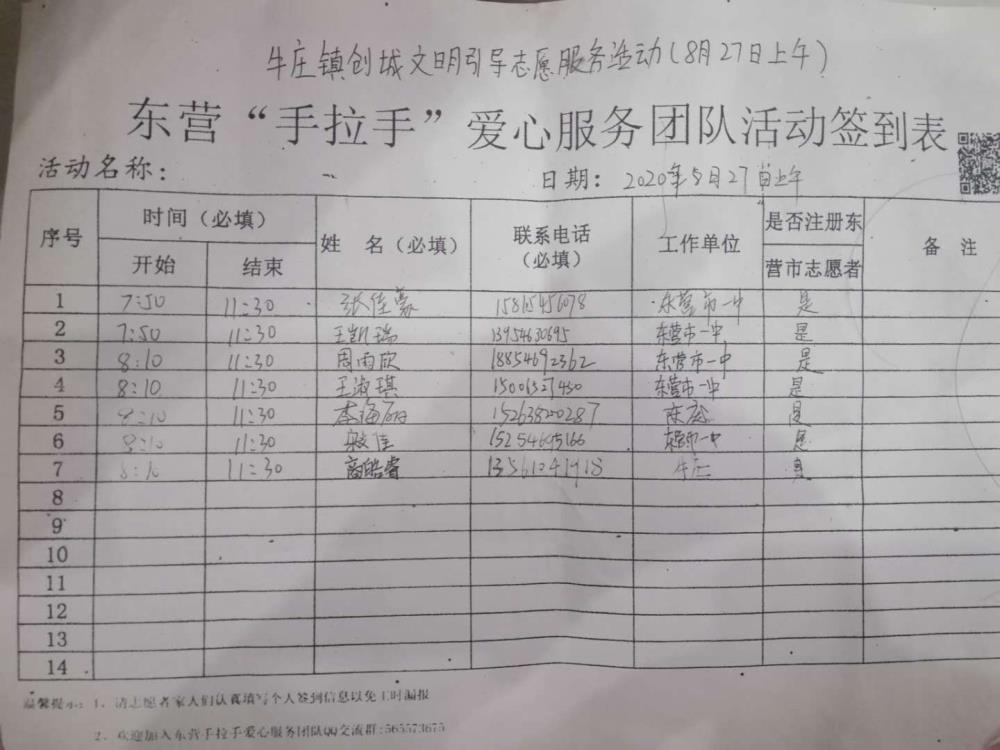 牛庄镇创城文明引导志愿服务活动(8月27日上午)
东营“手拉手”爱心服务团队活动签到表
活动名称: 日期: 2020年8月27日上午
序号 时间(必填) 姓 名(必填) 联系电话(必填) 工作单位 是否注册东营市志愿者 备 注
开始 结束
1 7:50 11:30 张佳蒙 15815456078 东营市一中 是
2 7:50 11:30 王凯瑞 13954630695 东营市一中 是
3 8:10 11:30 周雨欣 18854692362 东营市一中 是
4 8:10 11:30 王淑琪 15006327430 东营市一中 是
5 8:10 11:30 李海丽 15263820287 是
6 8:10 11:30 15254695166 东营市一中 是
7 8:10 11:30 商皓睿 13561241918 牛庄 是
8
9
10
11
12
13
14
温馨提示: 1、请志愿者家人们认真填写个人签到信息以免工时漏报
2、欢迎加入东营手拉手爱心服务团队QQ交流群:565573675